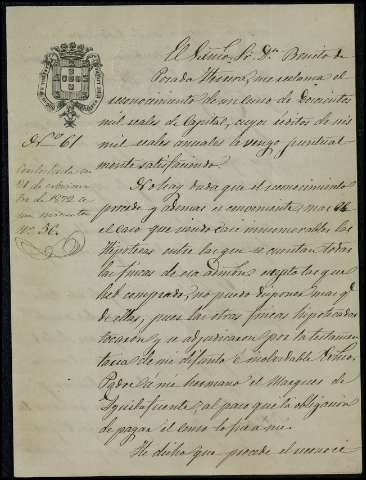 El Exmo. Sr. Dn. Benito de
Posada Herrera, me reclama el
reconocimiento de un censo de Doscientos
mil reales de Capital, cuyos réditos de seis
mil reales anuales le vengo puntual-
mente satisfaciendo.
No hay duda que el reconocimiento
procede y además es conveniente, mas
el caso que siendo casi innumerables las
Hipotecas entre las que se cuentan todas
las fincas de esa admón. excepto las que
he comprado, no puedo disponer mas qe.
de ellas, pues las otras fincas hipotecadas
tocaron y se adjudicaron por la testamen-
taria de mi difunto é inolvidable
Padre á mi hermano el Marques de
Aguilafuente, al paso que la obligación
de pagar el censo lo fué á mi.
He dicho que procede el reconoci
Nº 61
Contestada en
de 1872
nº 36.